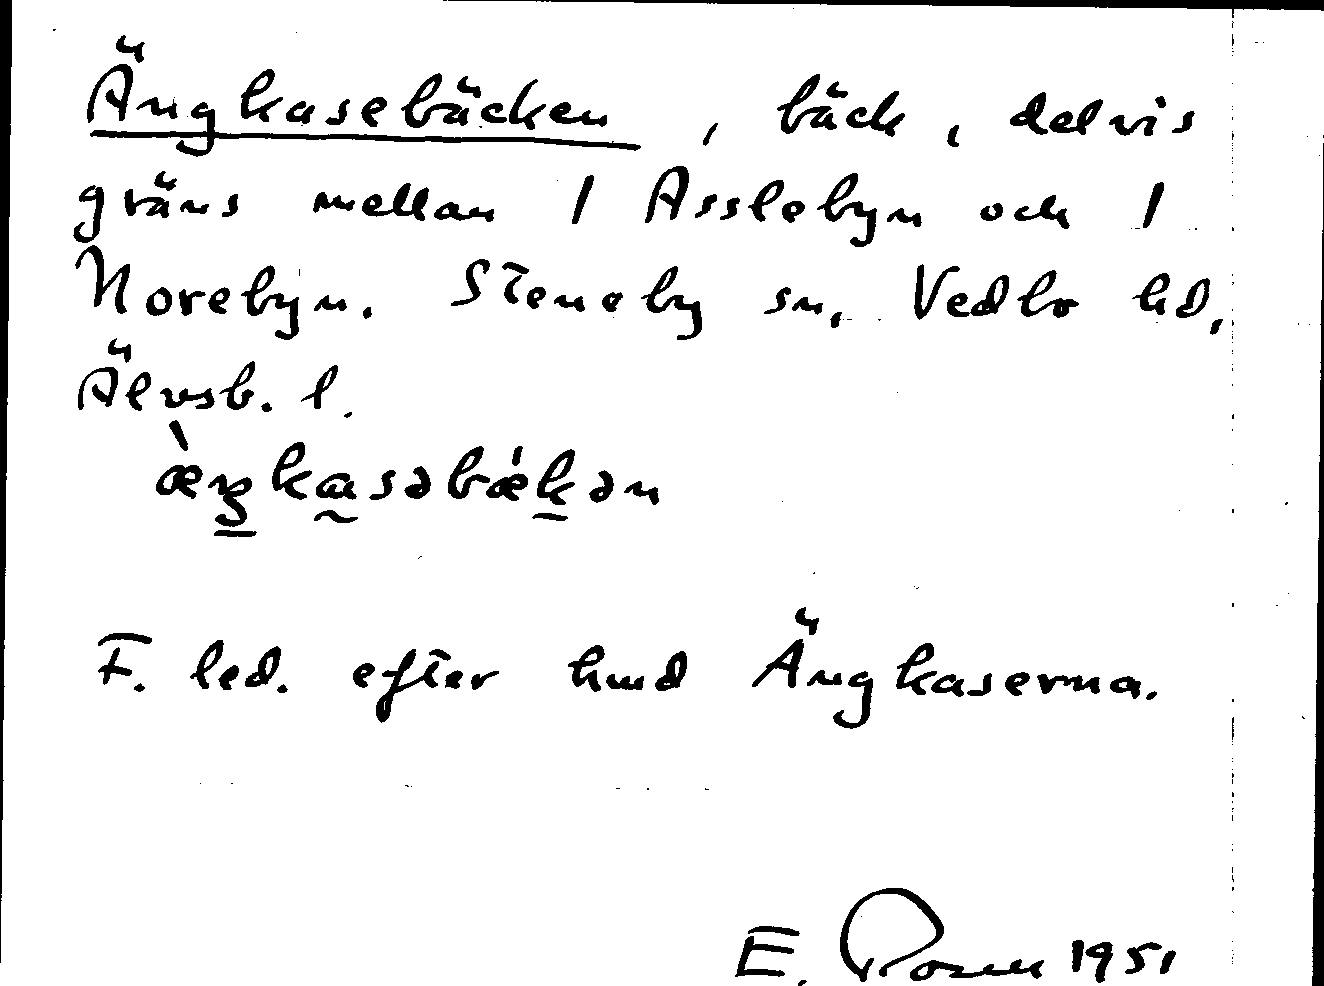 Ängkasebäcken, bäck, delvis
gräns mellan 1 Asslebyn och 1
Norebyn. Steneby sn, Vedbo hd,
Älvsb. l.
æ̀ŋkasəbǽkən
F. led. efter hmd Ängkaserna.
E. Rosen 1951